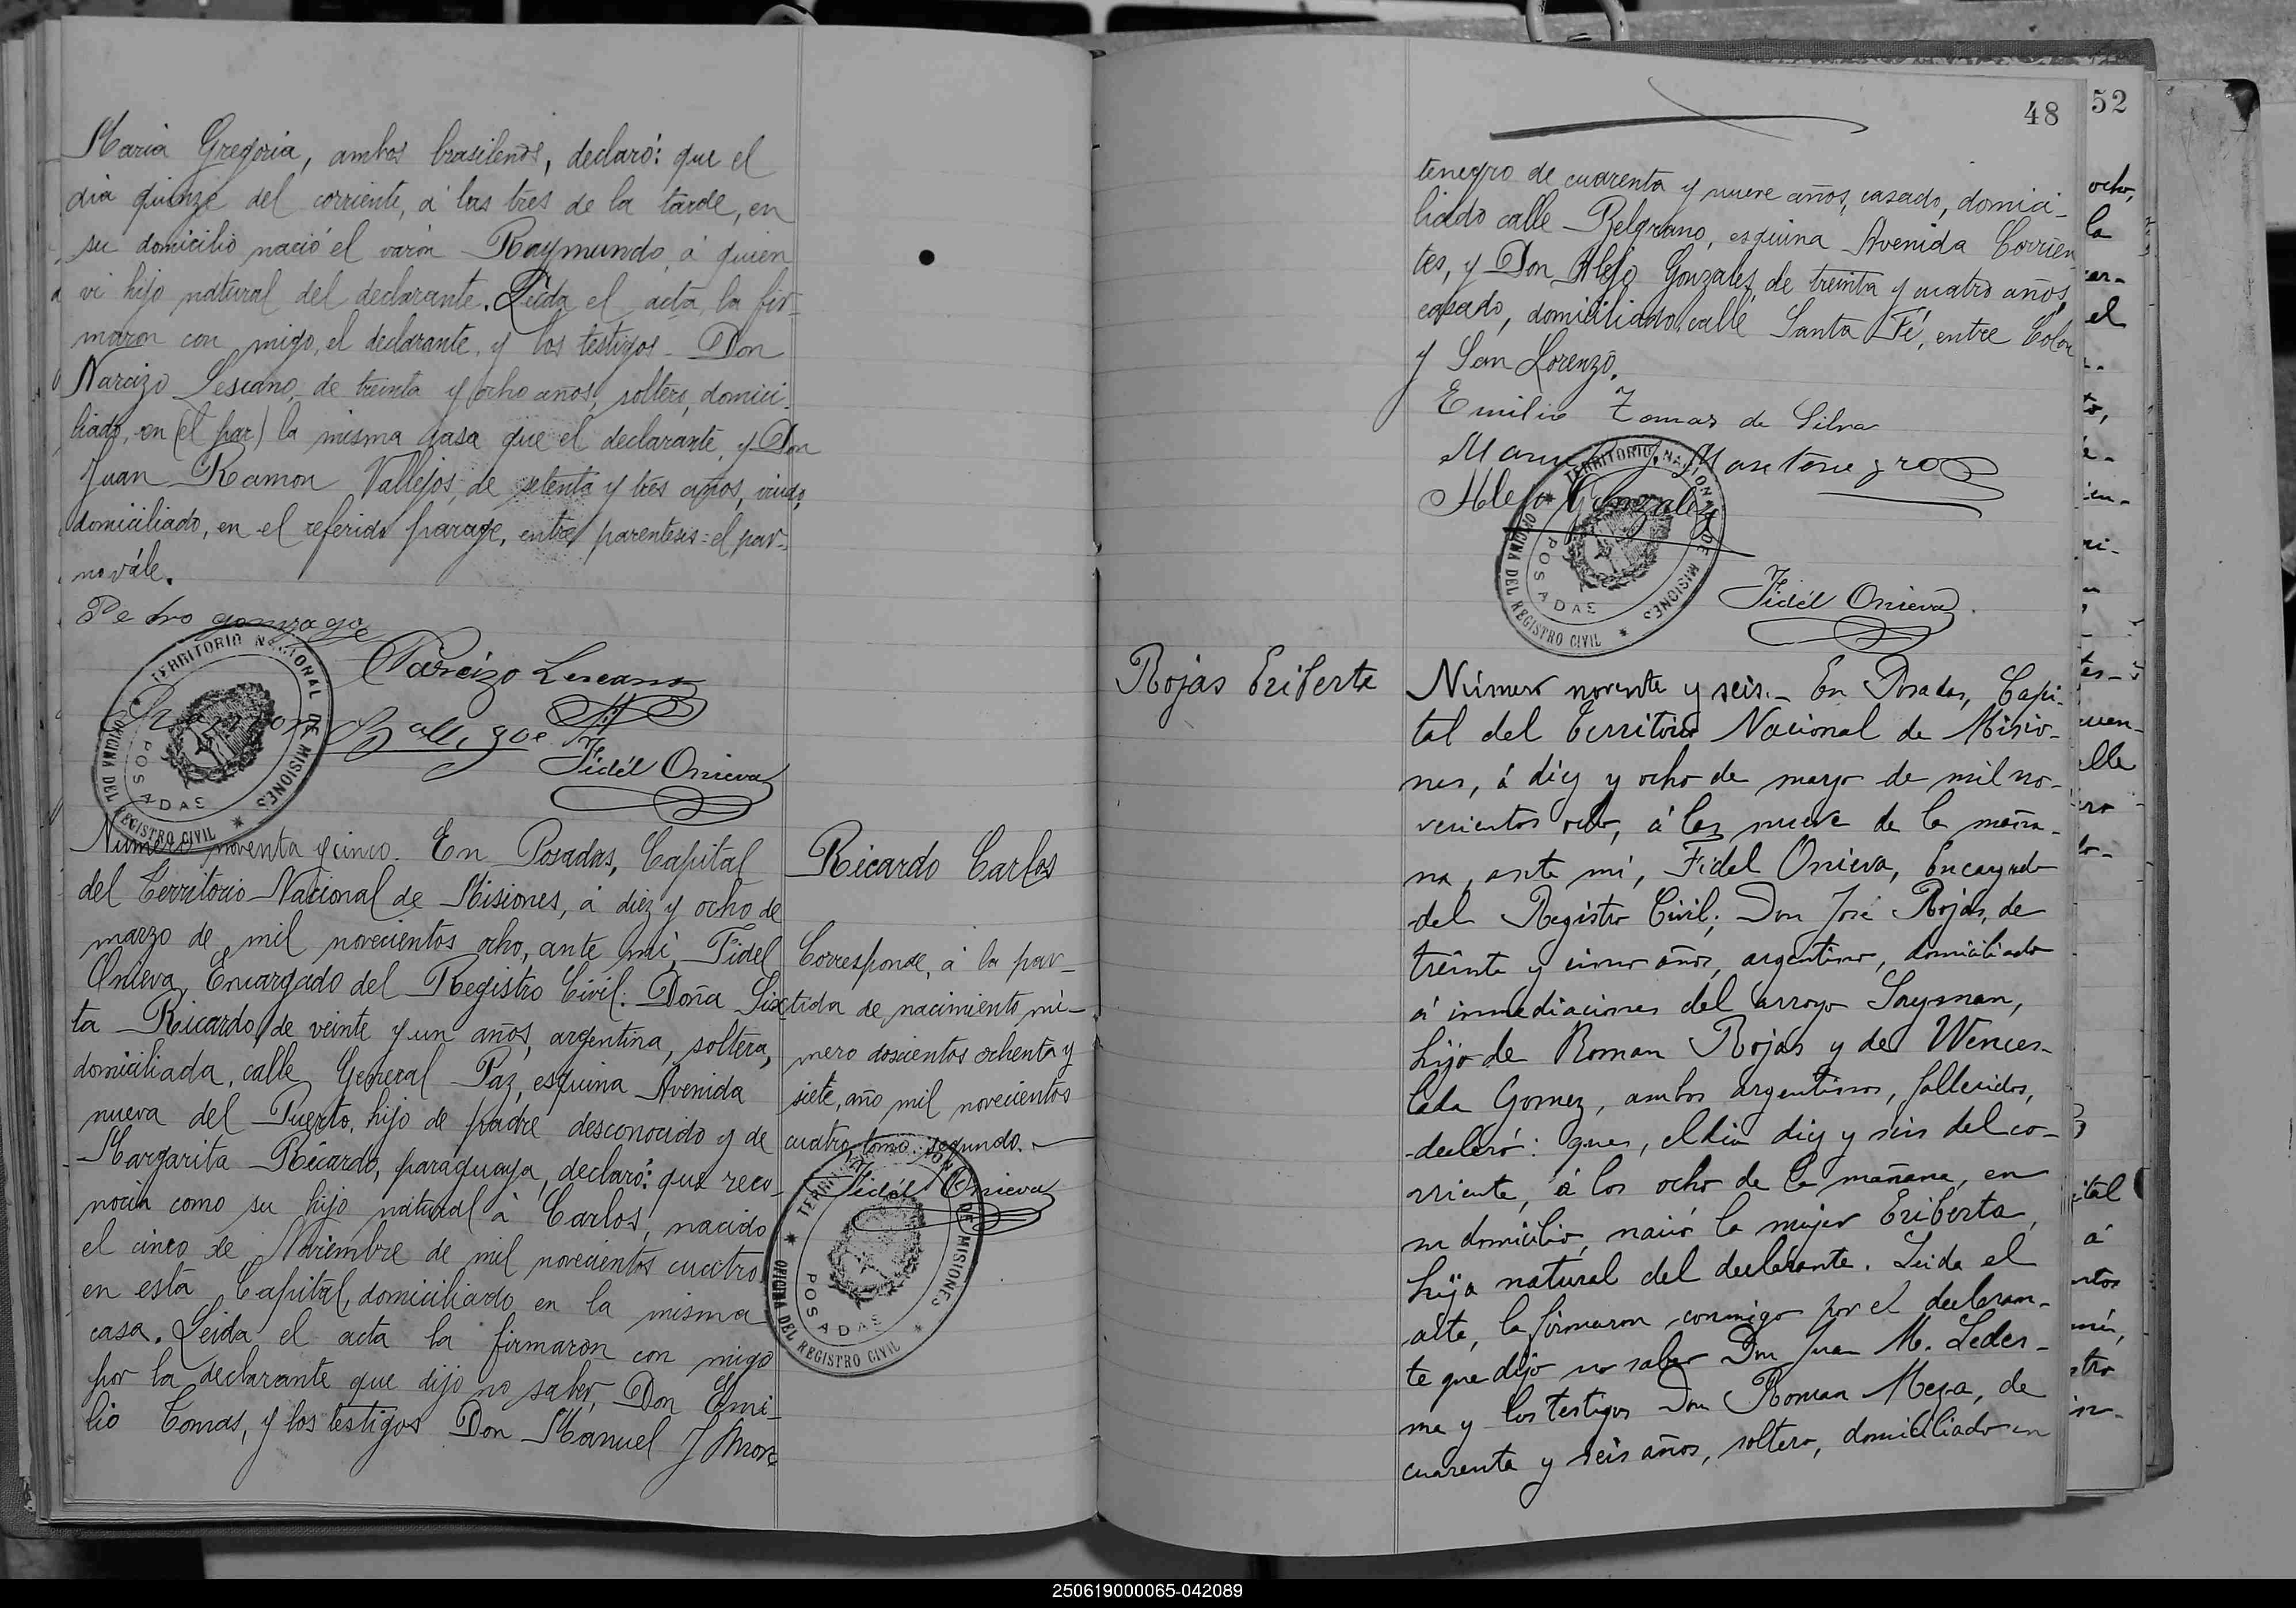 Maria Gregoria, ambos brasileños, declaró: que el
dia quinze del corriente, á las tres de la tarde, en
su domicilio nació el varón Raymundo, á quien
vi hijo natural del declarante. Leida el acta, la fir-
maron con migo, el declarante, y los testigos Don
Narcizo Lescano, de treinta y ocho años, soltero, domici-
liado, en (el par) la misma casa que el declarante, y Don
Juan Ramon Vallejos, de setenta y tres años, viudo,
domiciliado, en el referido parage, entre parentesis = el par-
no vále.
Pedro gonzaga
Narcizo Lescano
Ramon Ballegoe
Fidél Onieva
TERRITORIO NACIONAL DE MISIONES
OFICINA DEL REGISTRO CIVIL
POSADAS
Número noventa y cinco. En Posadas, Capital
del Territorio Nacional de Misiones, á diez y ocho de
marzo de mil novecientos ocho, ante mi, Fidel
Onieva, Encargado del Registro Civil: Doña Six
ta Ricardo, de veinte y un años, argentina, soltera,
domiciliada, calle General Paz, esquina Avenida
nueva del Puerto, hijo de padre desconocido y de
Margarita Ricardo, paraguaya, declaró: que reco-
nocia como su hijo natural á Carlos, nacido
el cinco de Noviembre de mil novecientos cuatro
en esta Capital, domiciliado en la misma
casa. Leida el acta la firmaron con migo
por la declarante que dijo no saber, Don Emi-
lio Tomas, y los testigos Don Manuel J Mon
Ricardo Carlos
Corresponde, á la par-
tida de nacimiento nú-
mero doscientos ochenta y
siete, año mil novecientos
cuatro, tomo: segundo.
Fidél Onieva
TERRITORIO NACIONAL DE MISIONES
OFICINA DEL REGISTRO CIVIL
POSADAS
48
tenegro de cuarenta y nueve años, casado, domici-
liado calle Belgrano, esquina Avenida Corrien
tes, y Don Alejo Gonzales, de treinta y cuatro años,
casado, domiciliado, calle Santa Fé, entre Colon
y San Lorenzo.
Emilio Tomas de Silva
Manuel J. Montenegro
Alejo Gonzalez
Fidél Onieva
TERRITORIO NACIONAL DE MISIONES
OFICINA DEL REGISTRO CIVIL
POSADAS
Rojas Eriberta
Número noventa y seis.- En Posadas, Capi-
tal del Territorio Nacional de Misio-
nes, á diez y ocho de marzo de mil no-
vecientos ocho, á las nueve de la maña-
na, ante mí, Fidel Onieva, Encargado
del Registro Civil; Don José Rojas, de
treinta y cinco años, argentino, domiciliado
á inmediaciones del arroyo Zaysman,
hijo de Roman Rojas y de Wences-
lada Gomez, ambos argentinos, fallecidos,
declaró: que, el dia diez y seis del co-
rriente, á los ocho de la mañana, en
su domicilio, nació la mujer Eriberta,
hija natural del declarante. Leida el
acta, la firmaron conmigo por el declaran-
te que dijo no saber Don Juan M. Ledes-
ma y los testigos Don Roman Meza, de
cuarenta y seis años, soltero, domiciliado en
52
ocho,
la
el
elle
ital
á
mí,
tro
250619000065-042089